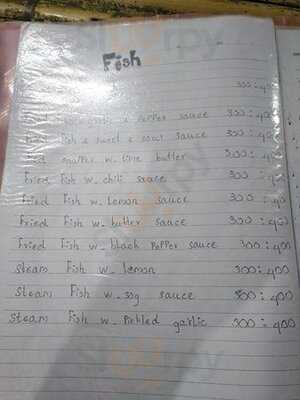 Fish
300:400
pepper sauce 300:400
Fish & sweet & sour sauce 300:400
w. lime butter 300:400
Fried Fish w. chili sauce 300:400
Fried Fish w. Lemon sauce 300:400
Fried Fish w. butter sauce 300:400
Fried Fish w. black Pepper sauce 300:400
Steam Fish w. lemon 300:400
Steam Fish w. soy sauce 300:400
Steam Fish w. Pickled garlic 300:400